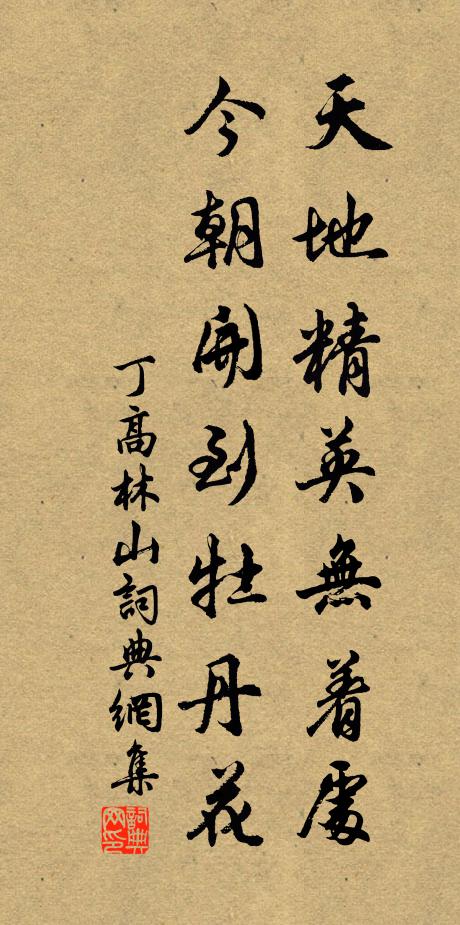 天地精英無着處
今朝開到牡丹花
丁高林山詞典網集
詞典網印